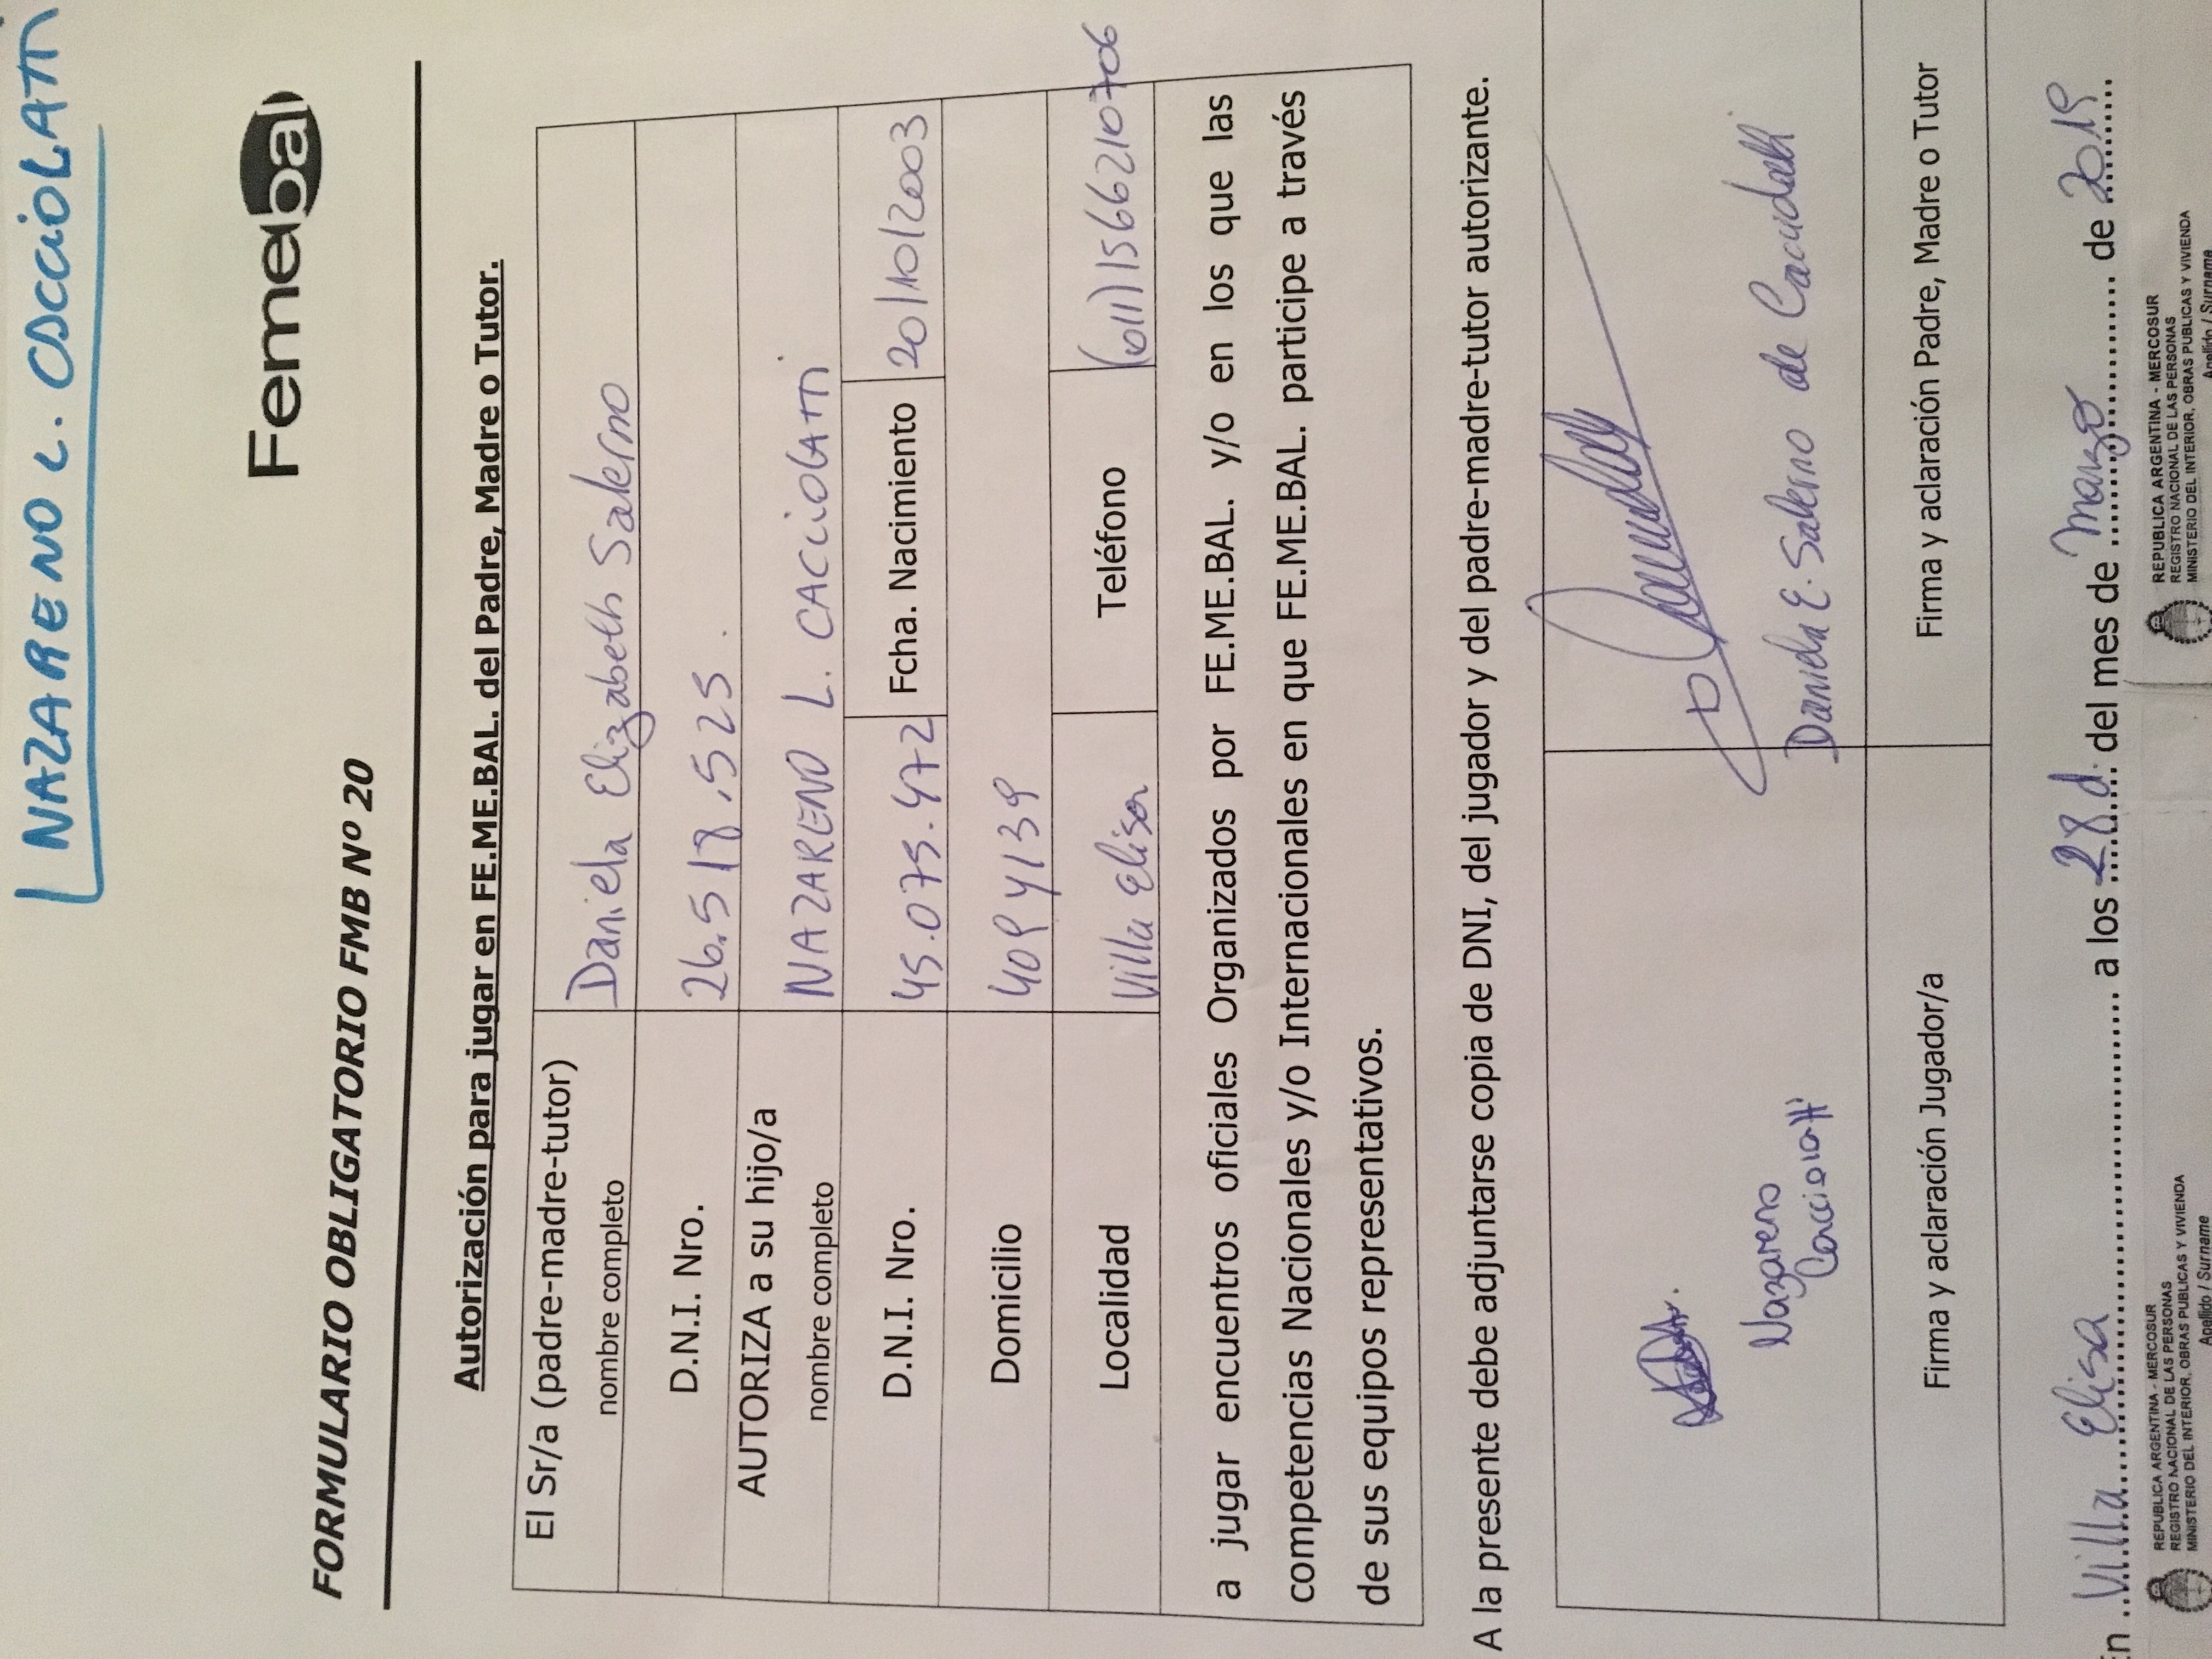 NAZARENO L. CACCIOLATTI
Femebal
FORMULARIO OBLIGATORIO FMB Nº 20
Autorización para jugar en FE.ME.BAL. del Padre, Madre o Tutor.
El Sr/a (padre-madre-tutor) nombre completo Daniela Elizabeth Salerno
D.N.I. Nro. 26.518.525
AUTORIZA a su hijo/a nombre completo NAZARENO L. CACCIOLATTI
D.N.I. Nro. 45.075.472 Fcha. Nacimiento 20/10/2003
Domicilio 409 4139
Localidad Villa Elisa Teléfono (011) 1566210706
a jugar encuentros oficiales Organizados por FE.ME.BAL. y/o en los que las
competencias Nacionales y/o Internacionales en que FE.ME.BAL. participe a través
de sus equipos representativos.
A la presente debe adjuntarse copia de DNI, del jugador y del padre-madre-tutor autorizante.
Nazareno
Cacciolatti
Daniela E. Salerno de
Firma y aclaración Jugador/a Firma y aclaración Padre, Madre o Tutor
En Villa Elisa a los 28 d. del mes de Marzo de 2019
REPUBLICA ARGENTINA - MERCOSUR
REGISTRO NACIONAL DE LAS PERSONAS
MINISTERIO DEL INTERIOR, OBRAS PUBLICAS Y VIVIENDA
Apellido / Surname
REPUBLICA ARGENTINA - MERCOSUR
REGISTRO NACIONAL DE LAS PERSONAS
MINISTERIO DEL INTERIOR, OBRAS PUBLICAS Y VIVIENDA
Apellido / Surname